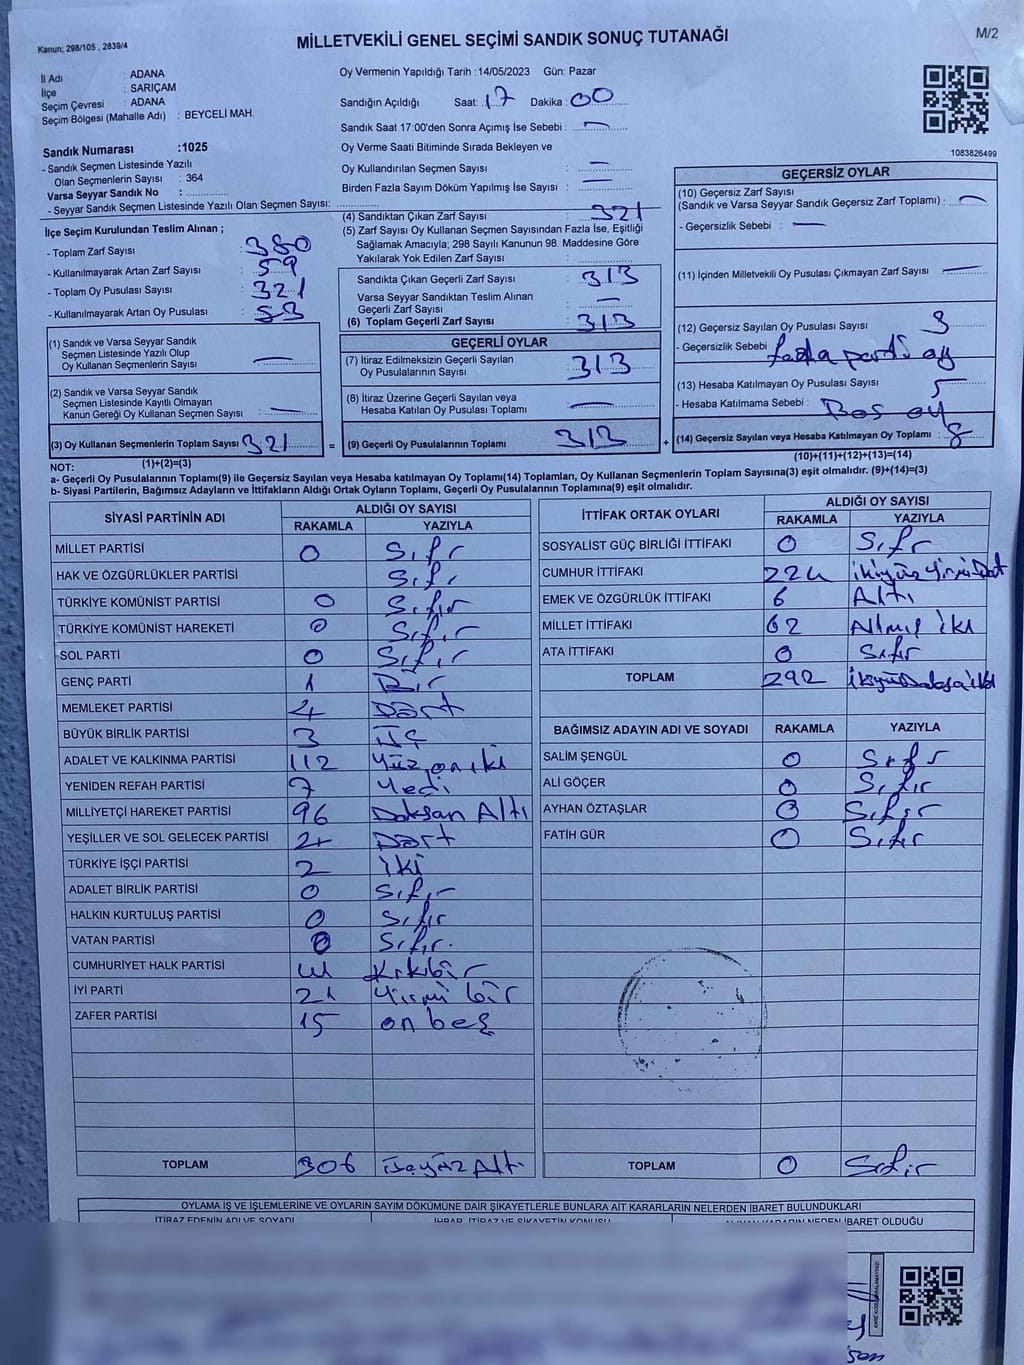 Kanun; 298/105 , 2839/4
MİLLETVEKİLİ GENEL SEÇİMİ SANDIK SONUÇ TUTANAĞI
M/2
İl Adı : ADANA
İlçe : SARIÇAM
Seçim Çevresi : ADANA
Seçim Bölgesi (Mahalle Adı) : BEYCELİ MAH.
Oy Vermenin Yapıldığı Tarih :14/05/2023 Gün: Pazar
Sandığın Açıldığı Saat: 17 Dakika : 00
Sandık Saat 17:00'den Sonra Açımış İse Sebebi : —
Oy Verme Saati Bitiminde Sırada Bekleyen ve
Oy Kullandırılan Seçmen Sayısı : —
Birden Fazla Sayım Döküm Yapılmış İse Sayısı : —
1083826499
Sandık Numarası :1025
- Sandık Seçmen Listesinde Yazılı
Olan Seçmenlerin Sayısı : 364
Varsa Seyyar Sandık No :
- Seyyar Sandık Seçmen Listesinde Yazılı Olan Seçmen Sayısı:
İlçe Seçim Kurulundan Teslim Alınan ;
- Toplam Zarf Sayısı : 380
- Kullanılmayarak Artan Zarf Sayısı : 59
- Toplam Oy Pusulası Sayısı : 321
- Kullanılmayarak Artan Oy Pusulası :
(1) Sandık ve Varsa Seyyar Sandık
Seçmen Listesinde Yazılı Olup
Oy Kullanan Seçmenlerin Sayısı : —
(2) Sandık ve Varsa Seyyar Sandık
Seçmen Listesinde Kayıtlı Olmayan
Kanun Gereği Oy Kullanan Seçmen Sayısı : —
(3) Oy Kullanan Seçmenlerin Toplam Sayısı : 321
(1)+(2)=(3)
(4) Sandıktan Çıkan Zarf Sayısı : 321
(5) Zarf Sayısı Oy Kullanan Seçmen Sayısından Fazla İse, Eşitliği
Sağlamak Amacıyla; 298 Sayılı Kanunun 98. Maddesine Göre
Yakılarak Yok Edilen Zarf Sayısı :
Sandıkta Çıkan Geçerli Zarf Sayısı : 313
Varsa Seyyar Sandıktan Teslim Alınan
Geçerli Zarf Sayısı : —
(6) Toplam Geçerli Zarf Sayısı : 313
GEÇERLİ OYLAR
(7) İtiraz Edilmeksizin Geçerli Sayılan
Oy Pusulalarının Sayısı : 313
(8) İtiraz Üzerine Geçerli Sayılan veya
Hesaba Katılan Oy Pusulası Toplamı : —
= (9) Geçerli Oy Pusulalarının Toplamı : 313 +
GEÇERSİZ OYLAR
(10) Geçersiz Zarf Sayısı
(Sandık ve Varsa Seyyar Sandık Geçersiz Zarf Toplamı) : —
- Geçersizlik Sebebi : —
(11) İçinden Milletvekili Oy Pusulası Çıkmayan Zarf Sayısı : —
(12) Geçersiz Sayılan Oy Pusulası Sayısı : 3
- Geçersizlik Sebebi : fazla parti oy
(13) Hesaba Katılmayan Oy Pusulası Sayısı : 5
- Hesaba Katılmama Sebebi : Boş oy
(14) Geçersiz Sayılan veya Hesaba Katılmayan Oy Toplamı : 8
(10)+(11)+(12)+(13)=(14)
NOT:
a- Geçerli Oy Pusulalarının Toplamı(9) ile Geçersiz Sayılan veya Hesaba katılmayan Oy Toplamı(14) Toplamları, Oy Kullanan Seçmenlerin Toplam Sayısına(3) eşit olmalıdır. (9)+(14)=(3)
b- Siyasi Partilerin, Bağımsız Adayların ve İttifakların Aldığı Ortak Oyların Toplamı, Geçerli Oy Pusulalarının Toplamına(9) eşit olmalıdır.
SİYASİ PARTİNİN ADI ALDIĞI OY SAYISI
RAKAMLA YAZIYLA
MİLLET PARTİSİ 0 Sıfır
HAK VE ÖZGÜRLÜKLER PARTİSİ Sıfır
TÜRKİYE KOMÜNİST PARTİSİ 0 Sıfır
TÜRKİYE KOMÜNİST HAREKETİ 0 Sıfır
SOL PARTİ 0 Sıfır
GENÇ PARTİ 1 Bir
MEMLEKET PARTİSİ 4 Dört
BÜYÜK BİRLİK PARTİSİ 3 Üç
ADALET VE KALKINMA PARTİSİ 112 Yüz on iki
YENİDEN REFAH PARTİSİ 7 Yedi
MİLLİYETÇİ HAREKET PARTİSİ 96 Doksan Altı
YEŞİLLER VE SOL GELECEK PARTİSİ 4 Dört
TÜRKİYE İŞÇİ PARTİSİ 2 iki
ADALET BİRLİK PARTİSİ 0 Sıfır
HALKIN KURTULUŞ PARTİSİ 0 Sıfır
VATAN PARTİSİ 0 Sıfır.
CUMHURİYET HALK PARTİSİ 41 Kırkbir
İYİ PARTİ 21 Yirmi bir
ZAFER PARTİSİ 15 on beş
TOPLAM 306 üçyüz Altı
İTTİFAK ORTAK OYLARI ALDIĞI OY SAYISI
RAKAMLA YAZIYLA
SOSYALİST GÜÇ BİRLİĞİ İTTİFAKI 0 Sıfır
CUMHUR İTTİFAKI 224 ikiyüz Yirmi Dört
EMEK VE ÖZGÜRLÜK İTTİFAKI 6 Altı
MİLLET İTTİFAKI 62 Altmış iki
ATA İTTİFAKI 0 Sıfır
TOPLAM 292 ikiyüz Doksan iki
BAĞIMSIZ ADAYIN ADI VE SOYADI RAKAMLA YAZIYLA
SALİM ŞENGÜL 0 Sıfır
ALİ GÖÇER 0 Sıfır
AYHAN ÖZTAŞLAR 0 Sıfır
FATİH GÜR 0 Sıfır
TOPLAM 0 Sıfır
OYLAMA İŞ VE İŞLEMLERİNE VE OYLARIN SAYIM DÖKÜMÜNE DAİR ŞİKAYETLERLE BUNLARA AİT KARARLARIN NELERDEN İBARET BULUNDUKLARI
İTİRAZ EDENİN ADI VE SOYADI İHBAR, İTİRAZ VE ŞİKAYETİN KONUSU ALINAN KARARIN NEDEN İBARET OLDUĞU